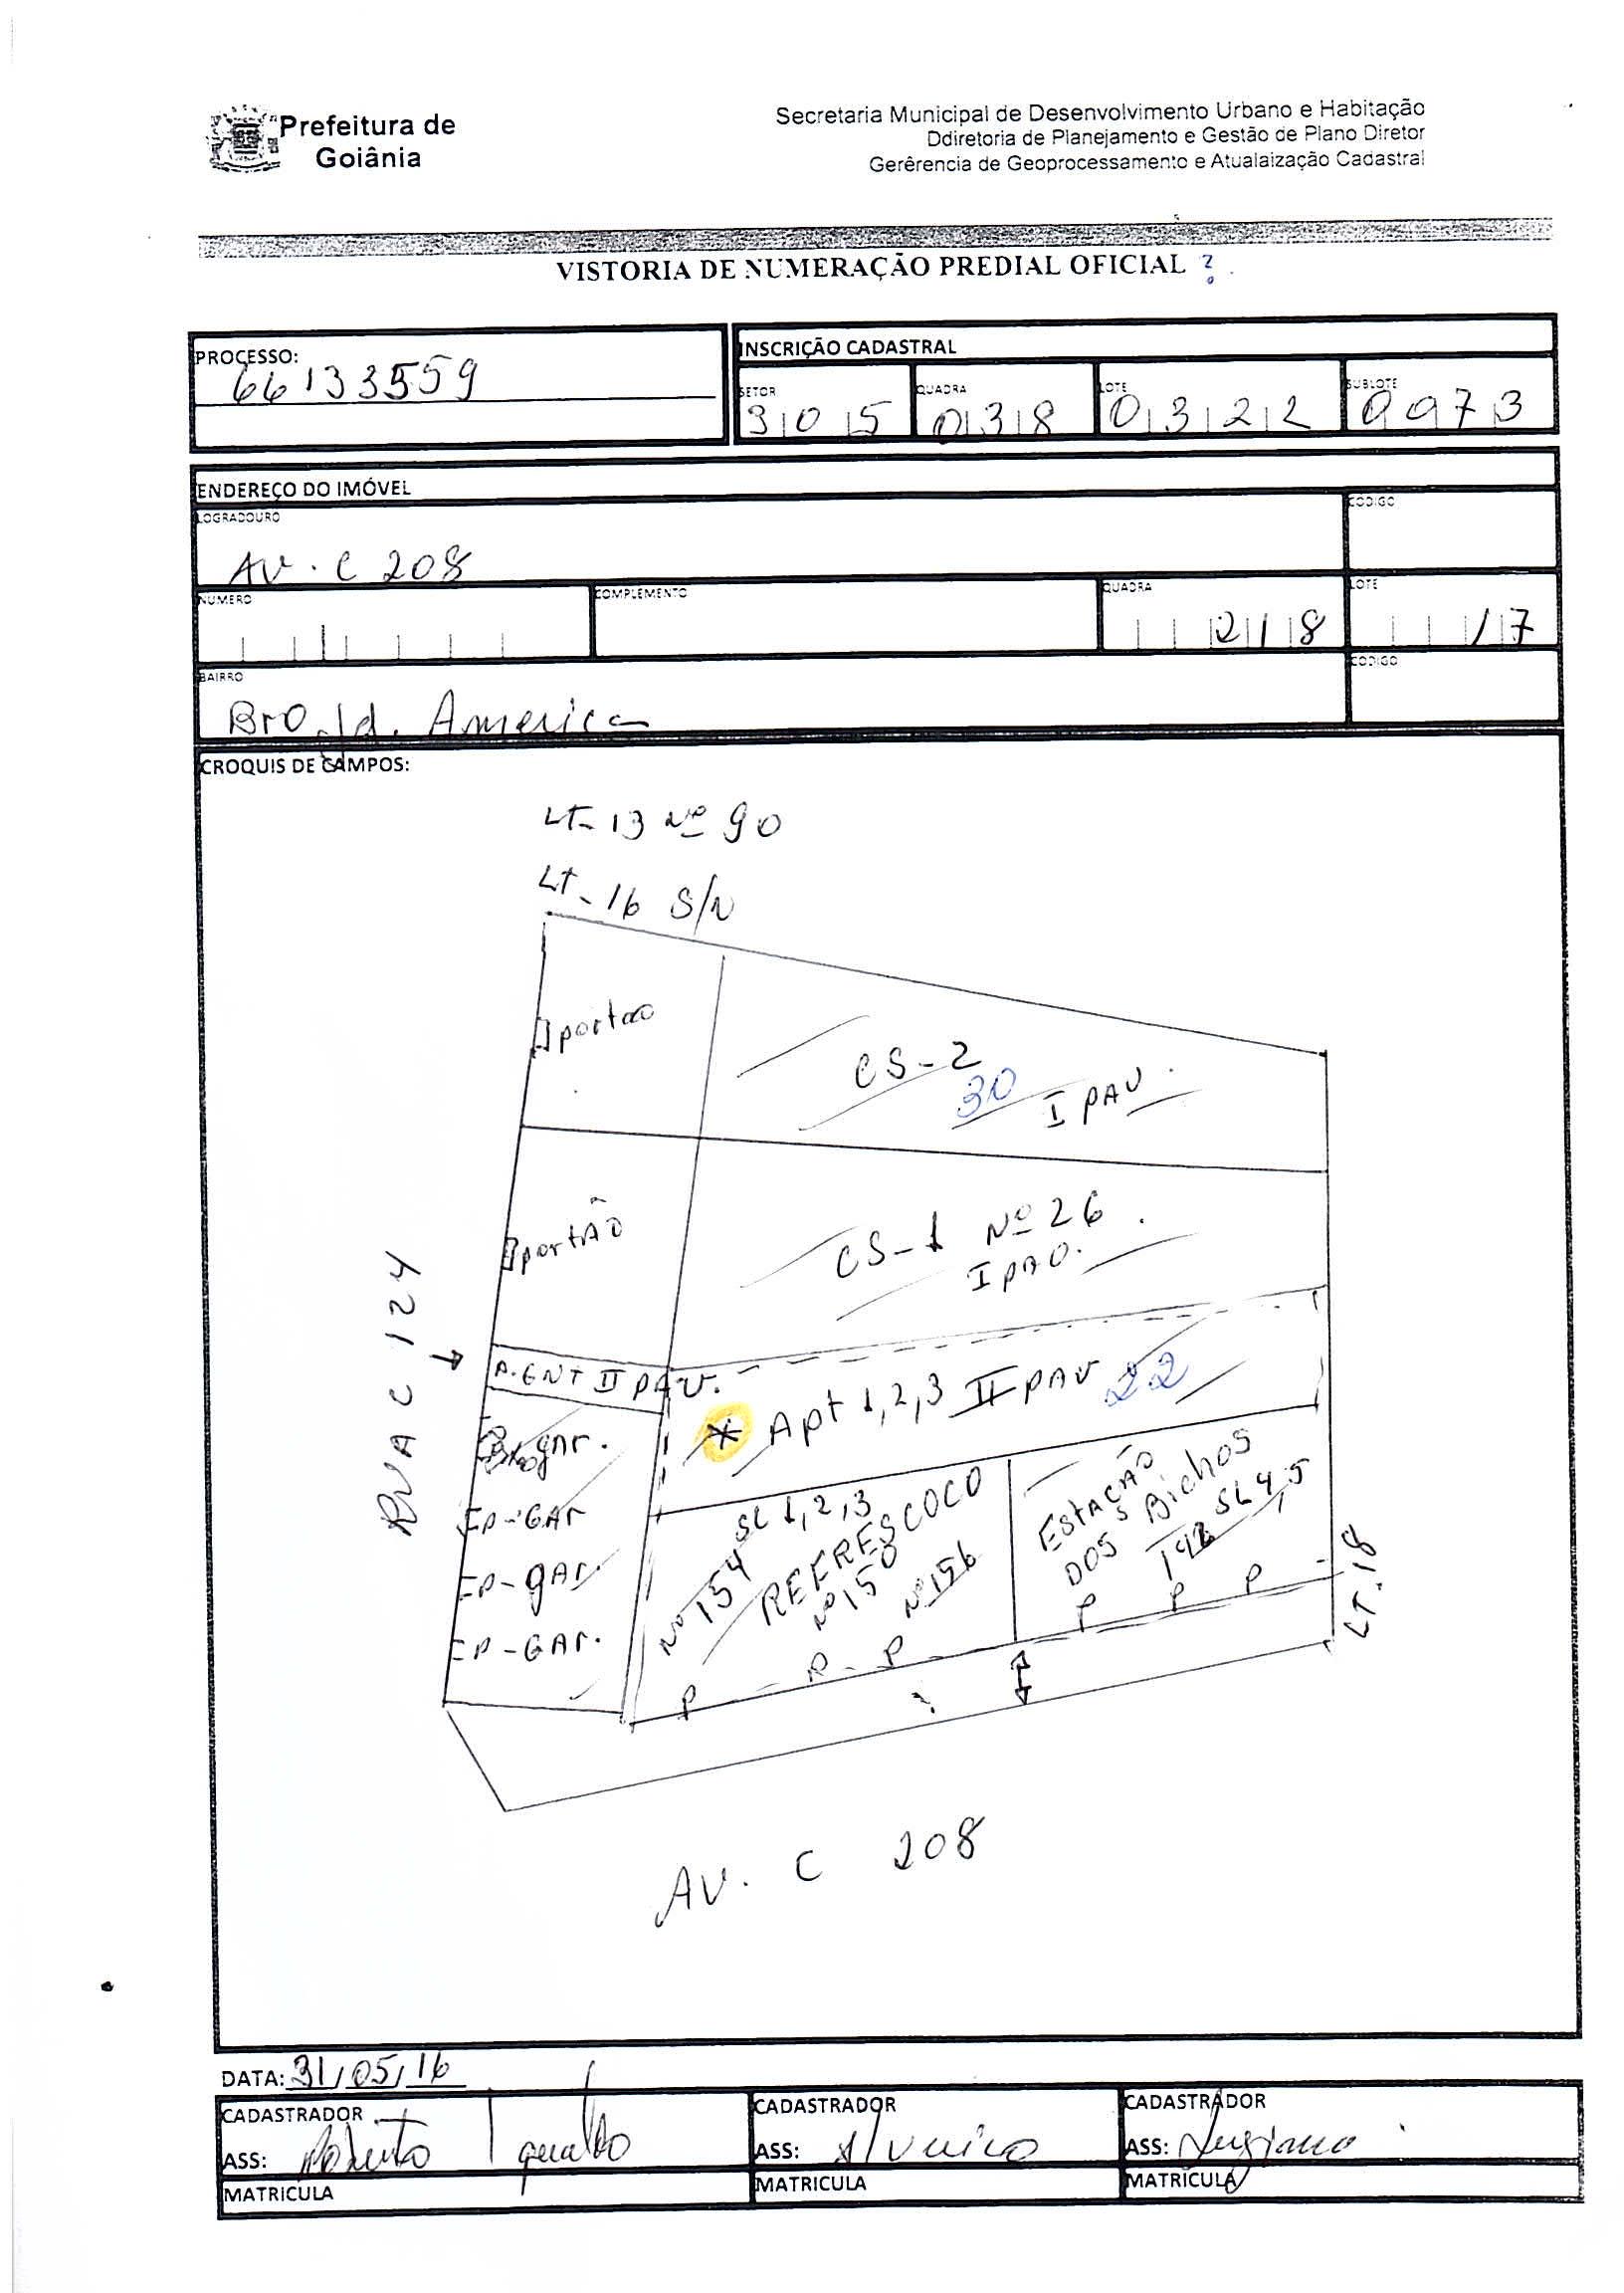 Prefeitura de
Goiânia
Secretaria Municipal de Desenvolvimento Urbano e Habitação
Ddiretoria de Planejamento e Gestão de Plano Diretor
Gerêrencia de Geoprocessamento e Atualaização Cadastral
VISTORIA DE NUMERAÇÃO PREDIAL OFICIAL ?
PROCESSO:
66133559
INSCRIÇÃO CADASTRAL
SETOR QUADRA LOTE SUBLOTE
305 038 0322 0073
ENDEREÇO DO IMÓVEL
LOGRADOURO CODIGO
AV. C 208
NUMERO COMPLEMENTO QUADRA LOTE
218 17
BAIRRO CODIGO
BrO Jd. America
CROQUIS DE CAMPOS:
LT-13 Nº 90
LT-16 S/N
portao
CS-2
30 I PAV.
portÃO
CS-1 Nº 26
I PAV.
RUA C 124
A.GNT II PAV.
* Apt 1,2,3 II PAV 22
gAr.
EP-GAR
EP-gAr.
EP-GAr.
SL 1,2,3
Nº 154
REFRESCOCO
Nº 150
Nº 156
ESTAÇÃO
DOS Bichos
SL 4,5
P P P
P P P
LT.18
AV. C 208
DATA: 31/05/16
CADASTRADOR CADASTRADOR CADASTRADOR
ASS: Roberto ASS: ASS:
MATRICULA MATRICULA MATRICULA